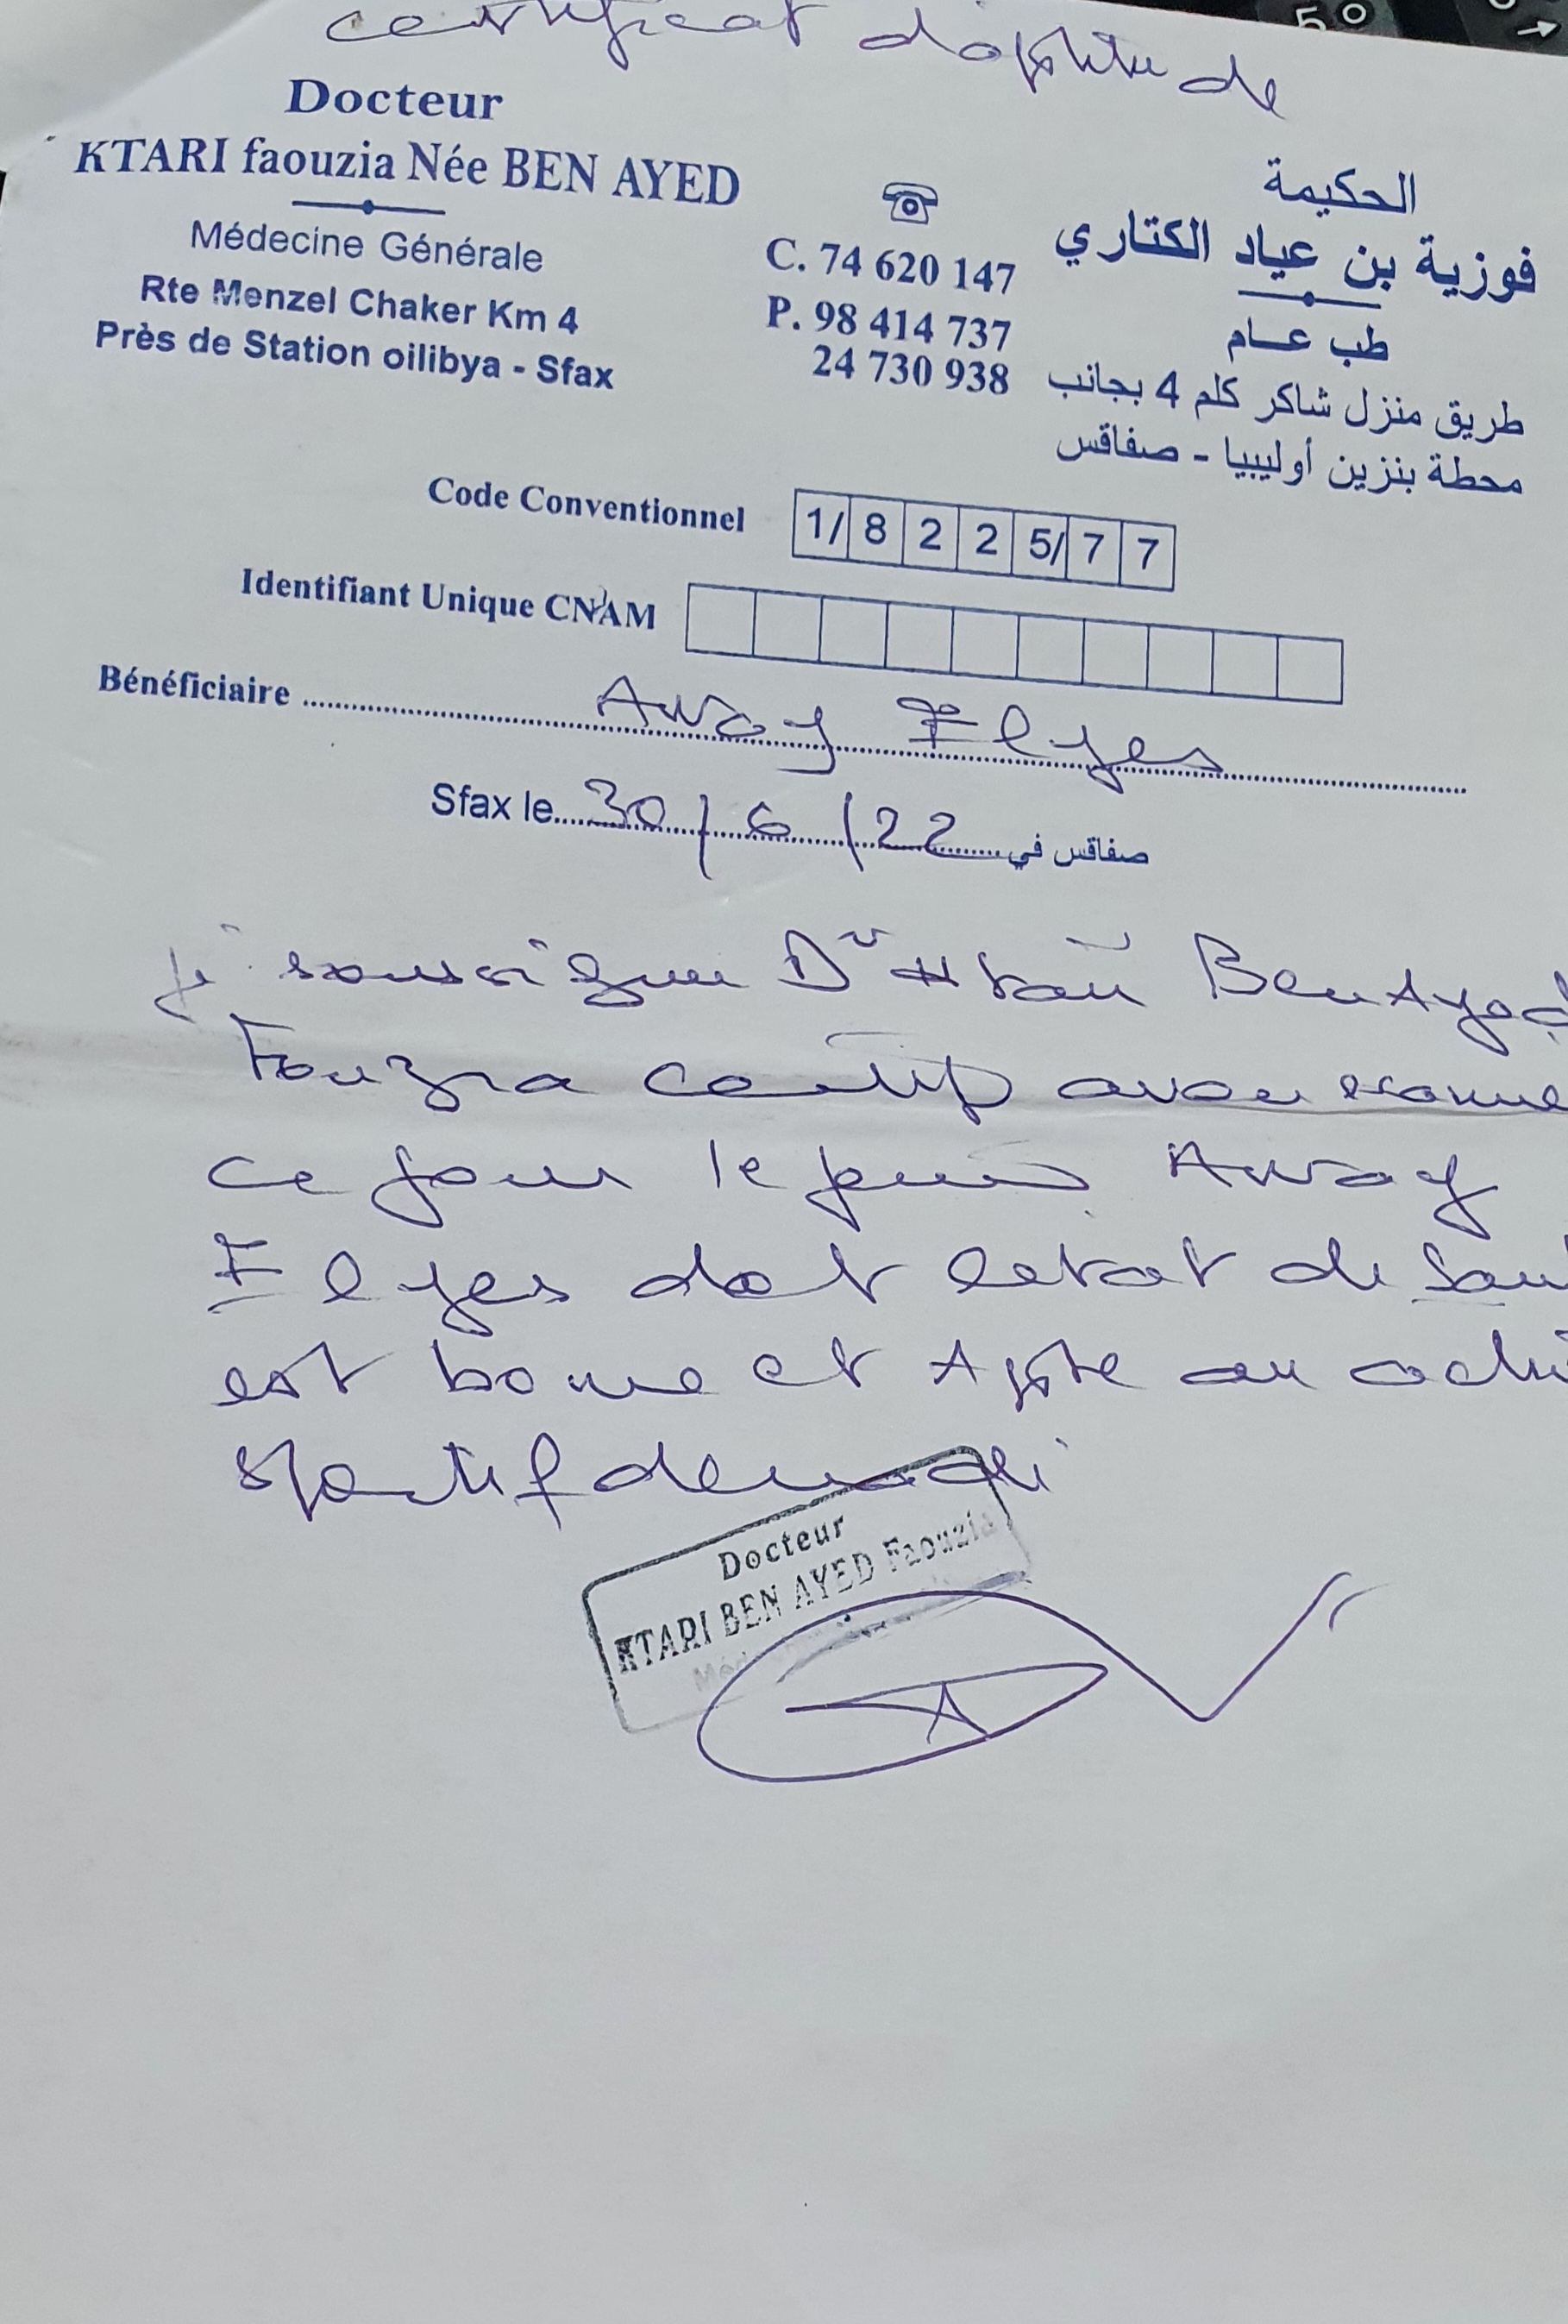 certificat d'aptitude
Docteur
KTARI faouzia Née BEN AYED
Médecine Générale
Rte Menzel Chaker Km 4
Près de Station oilibya - Sfax
C. 74 620 147
P. 98 414 737
24 730 938
الحكيمة
فوزية بن عياد الكتاري
طب عــام
طريق منزل شاكر كلم 4 بجانب
محطة بنزين أوليبيا - صفاقس
Code Conventionnel 1/ 8 2 2 5/ 7 7
Identifiant Unique CNAM
Bénéficiaire Elyes
Sfax le 30/6/22 صفاقس في
Dr Ben Ayed
certifie avoir
ce jour le
Elyes dont l'état de
est bonne et Apte au
sportif
Docteur
KTARI BEN AYED Faouzia
5°